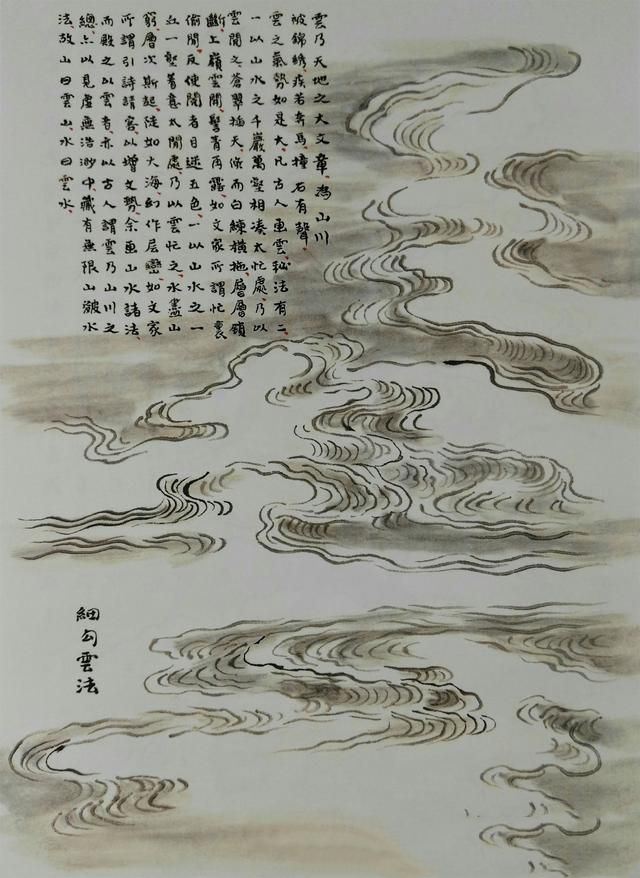 雲乃天地之大文章為山川
被錦綉疾若奔馬撞石有聲
雲之氣勢如是大凡古人画雲秘法有二
一以山水之千巖萬壑相凑太忙處乃以
雲閒之蒼翠插天倏而白練橫拖層層鎖
斷上嶺雲開髻青再露如文家所謂忙裏
偷閒反使閱者目迷五色一以山水之一
丘一壑着意太閒處乃以雲忙之水盡山
窮層次斯起陡如大海幻作层巒如文家
所謂引詩請客以增文勢余画山水諸法
而殿之以雲者亦以古人謂雲乃山川之
總亦以見虛無浩渺中藏有無限山皴水
法故山曰雲山水曰雲水
細勾雲法